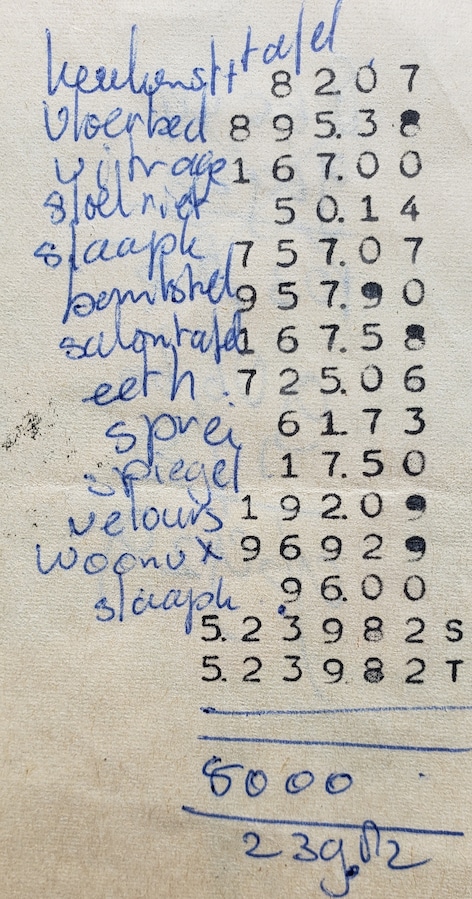 tafel
82.07
vloerbed 895.38
vitrage 167.00
stoel riet 50.14
slaapk 757.07
957.90
salontafel 167.58
eeth 725.06
sprei 61.73
spiegel 17.50
velours 192.09
969.29
slaapk 96.00
5.239.82 S
5.239.82 T
5000
239.82